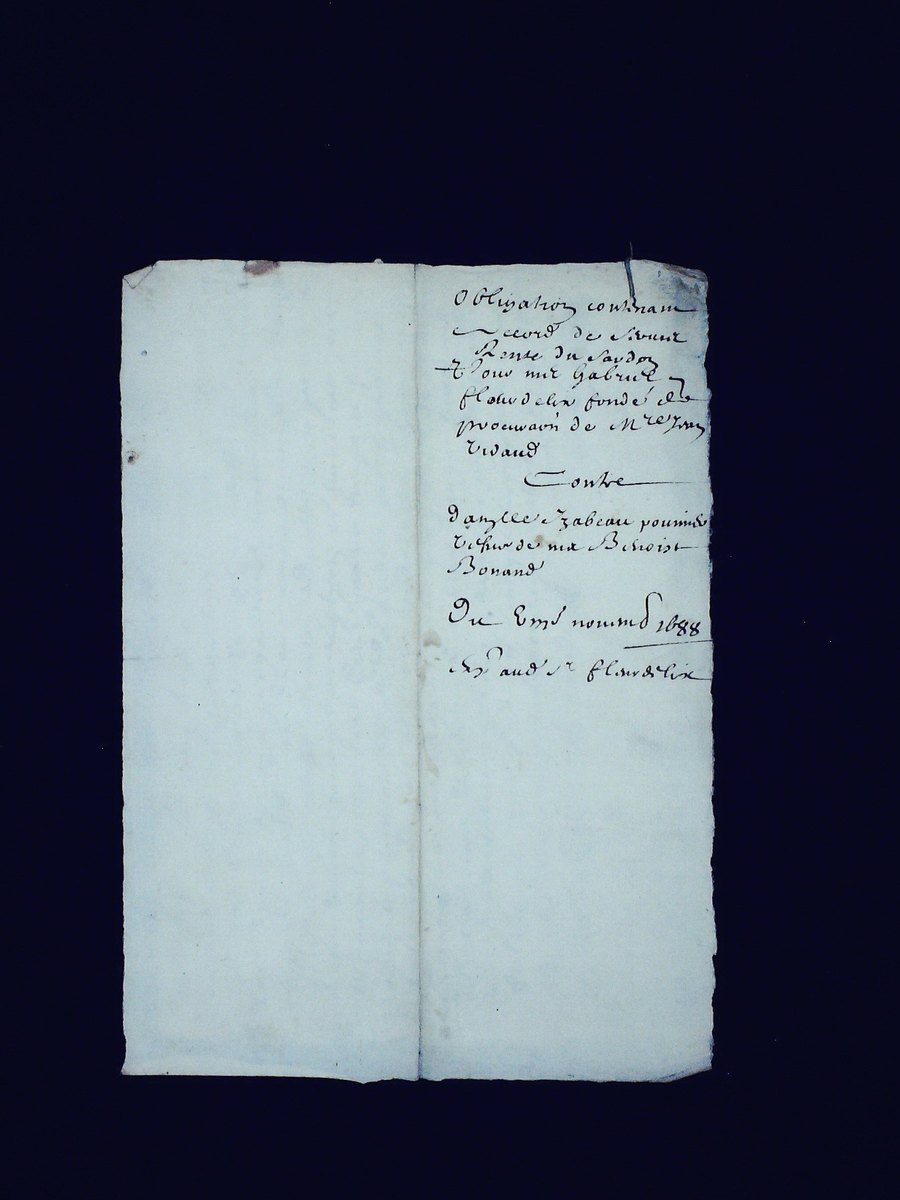 Obligation contenant
accord de
Rente du Sardon
Pour mre Gabriel
fleurdelix fondé de
procuraon de Mre Jean
Vidaud
Contre
Damlle Izabeau
vefve de me Benoist
Bonand
Du novemb 1688
Exp aud Sr fleurdelix